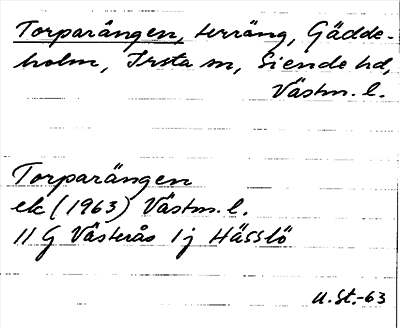 Torparängen, terräng, Gädde-
holm, Irsta sn, Siende hd,
Västm. l.
Torparängen
ek (1963) Västm. l.
11 G Västerås 1j Hässlö
U.St.-63